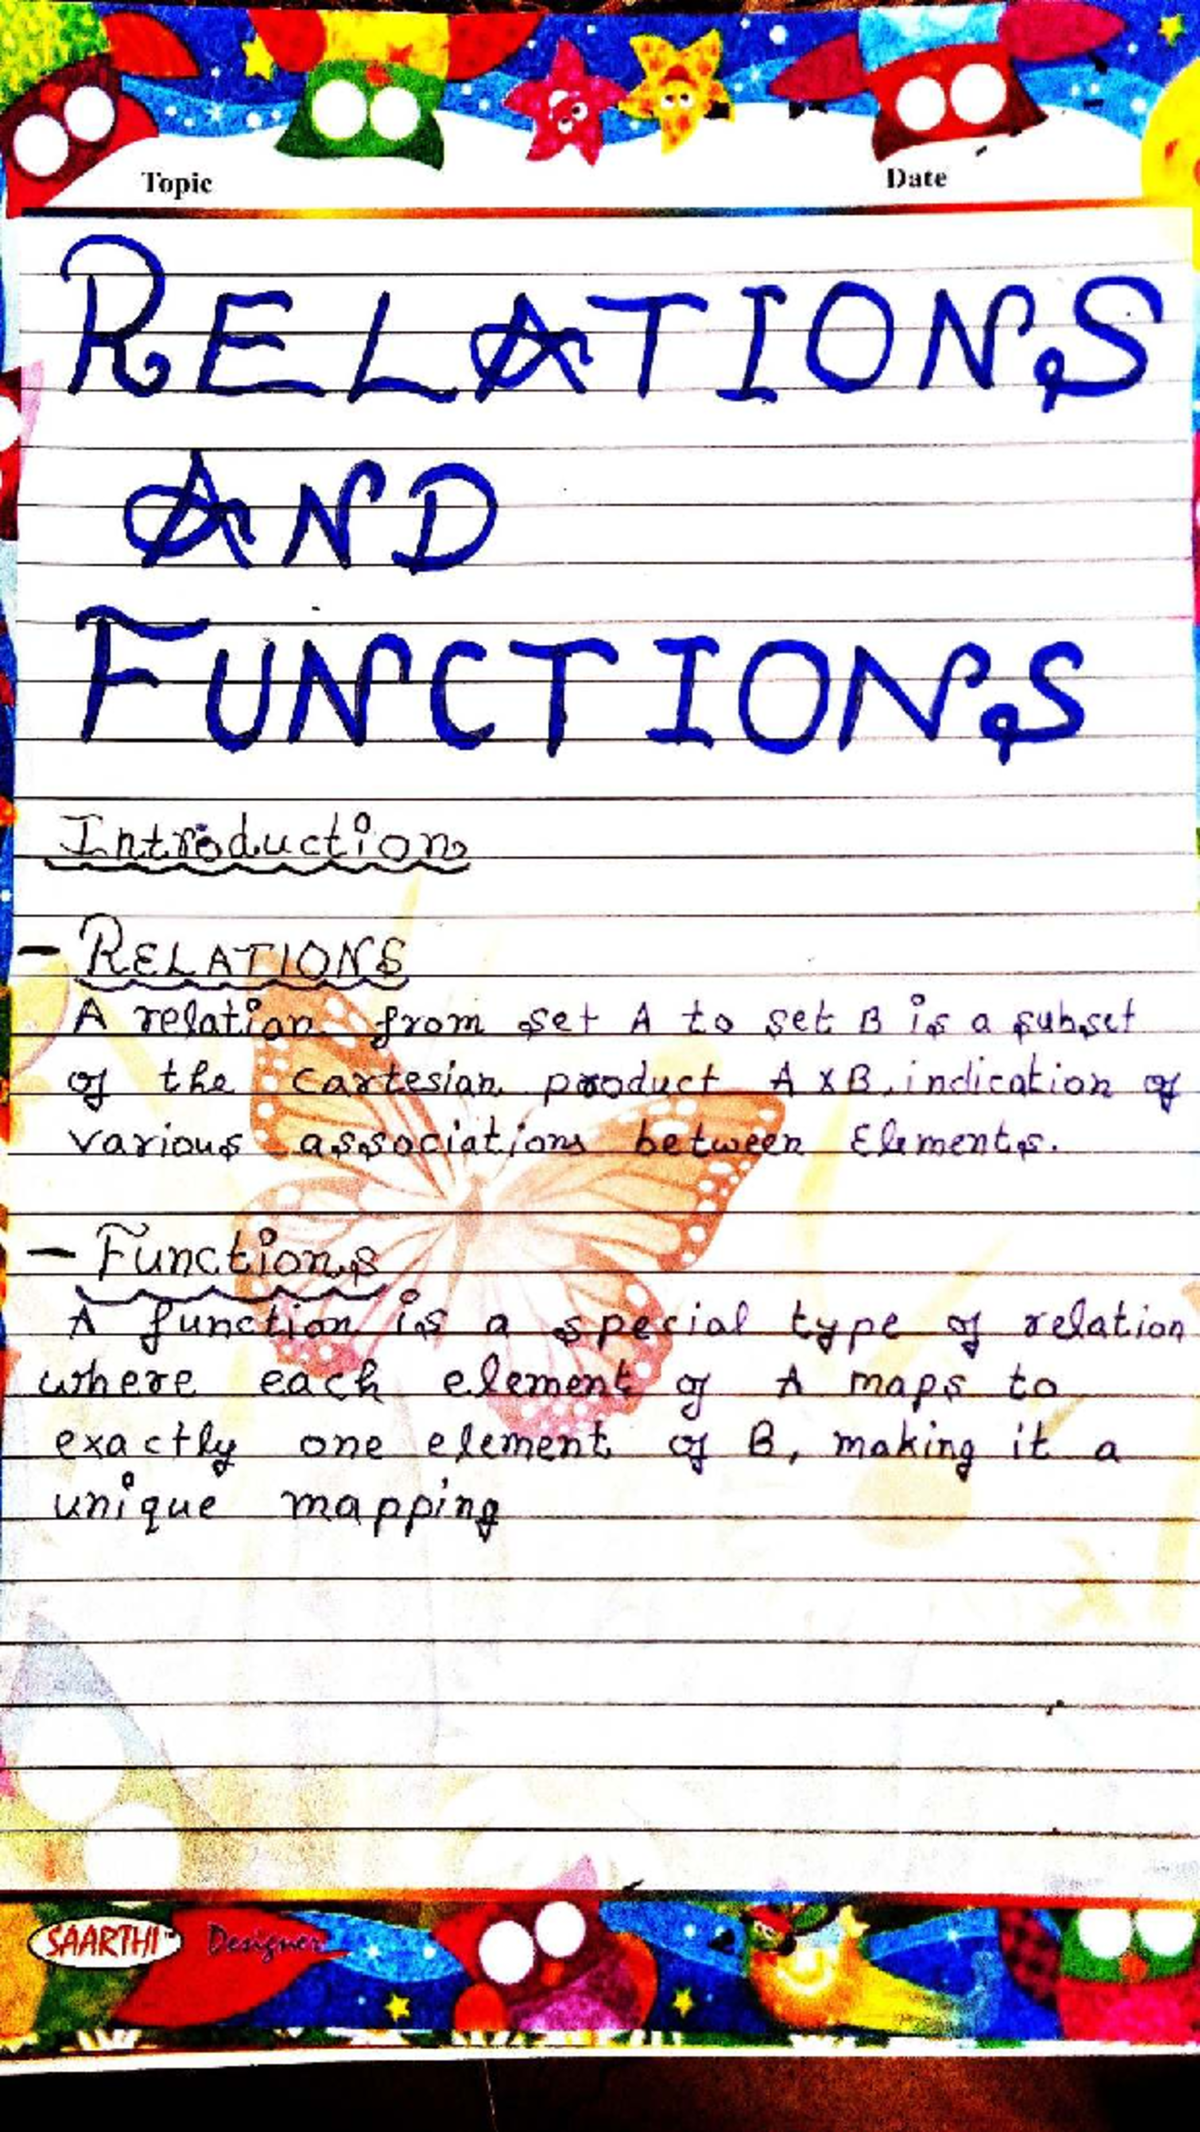 Topic
Date
RELATIONS
AND
FUNCTIONS
Introduction
- RELATIONS
A relation from set A to set B is a subset
of the cartesian product A x B, indication of
various associations between Elements.
- Functions
A function is a special type of relation
where each element of A maps to
exactly one element of B, making it a
unique mapping
SAARTHI™ Designer